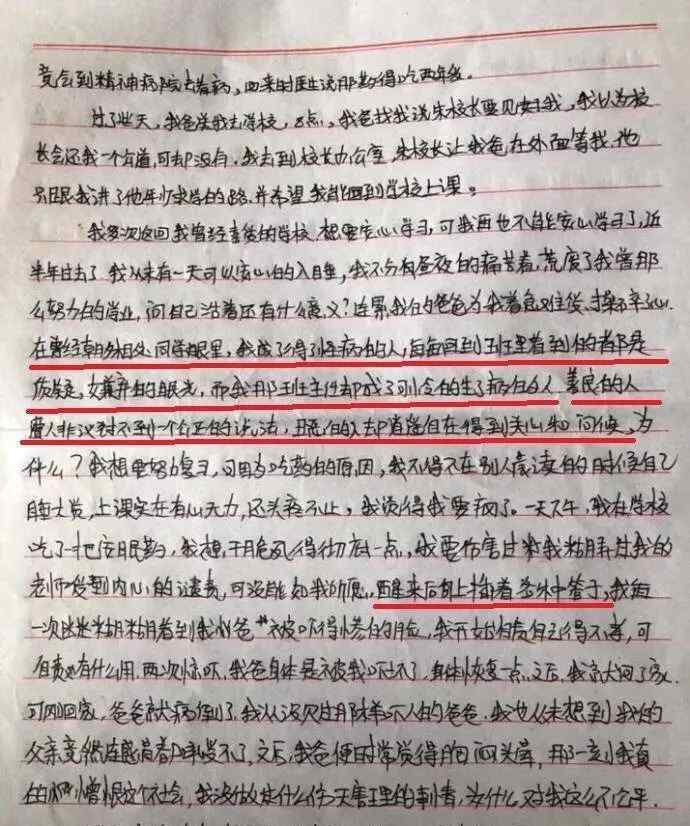 竟会到精神病院去看病,回来时医生说那药得吃两年余。
过了些天,我爸送我去学校,8点,我爸找我说朱校长要见我,我以为校
长会还我一个公道,可却没有,我去到校长办公室,朱校长让我爸在外面等我,他
只跟我讲了他年少求学的路,并希望我能回到学校上课。
我多次返回我曾经喜爱的学校,想要安心学习,可我再也不能安心学习了,近
半年过去了,我从未有一天可以安心的入睡,我不分白昼夜的痛苦着,荒废了我曾那
么努力的学业,问自己活着还有什么意义?连累我的爸爸为我着急难受、操碎了心。
在曾经朝夕相处同学眼里,我成了得了怪病的人,每每回到班里看到的都是
质疑,嫌弃的眼光,而我那班主任却成了可怜的生了病的人,善良的人
遭人非议却得不到一个公正的说法,丑恶的人却逍遥自在得到关心和问候,为
什么?我想要努力复习,可因为吃药的原因,我不得不在别人晨读的时候自己
睡大觉,上课实在有心无力,还头疼不止,我觉得我要疯了。一天下午,我在学校
吃了一把安眠药,我想,干脆死得彻底一点,我要伤害过我
老师受到内心的谴责,可没能如我所愿,醒来后身上插着
一次迷迷糊糊看到我爸爸被吓得惨白的脸,我开始自责自己得不孝,可
自责又有什么用,两次惊吓,我爸身体是被我吓坏了,身体恢复一点之后,我就回了家。
可刚回家,爸爸就病倒了,我从没见过那样吓人的爸爸,我也从未想到我的
父亲竟然连
憎恨这个社会,我没做过什么伤天害理的事情,为什么对我这么不公平。